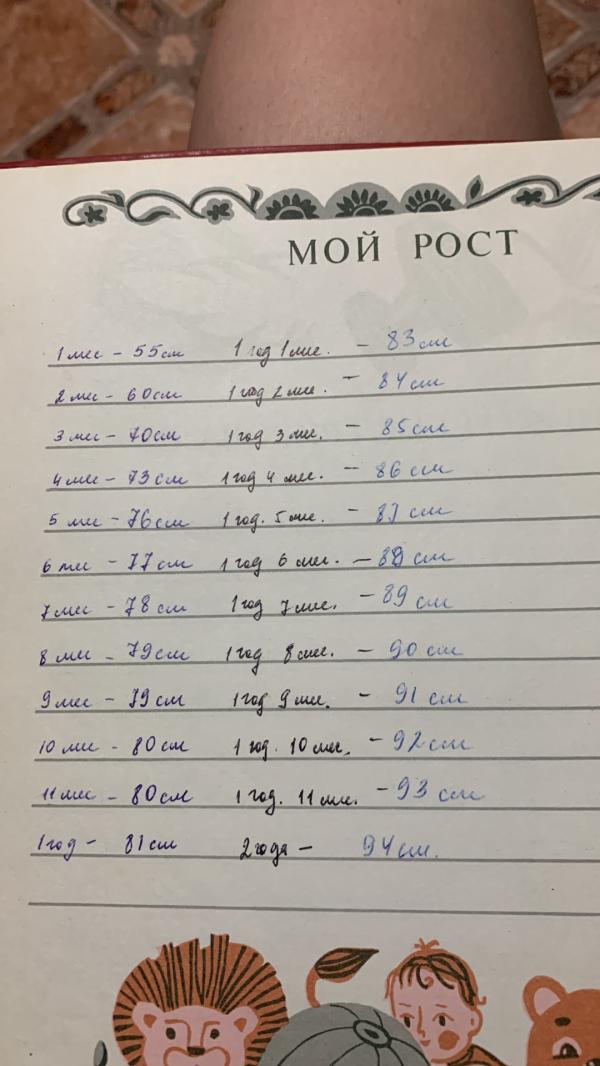 МОЙ РОСТ
1 мес - 55 см 1 год 1 мес. - 83 см
2 мес - 60 см 1 год 2 мес. - 84 см
3 мес - 70 см 1 год 3 мес. - 85 см
4 мес - 73 см 1 год 4 мес. - 86 см
5 мес - 76 см 1 год. 5 мес. - 87 см
6 мес - 77 см 1 год 6 мес. - 88 см
7 мес - 78 см 1 год 7 мес. - 89 см
8 мес - 79 см 1 год 8 мес. - 90 см
9 мес - 79 см 1 год 9 мес. - 91 см
10 мес - 80 см 1 год. 10 мес. - 92 см
11 мес - 80 см 1 год. 11 мес. - 93 см
1 год - 81 см 2 года - 94 см.